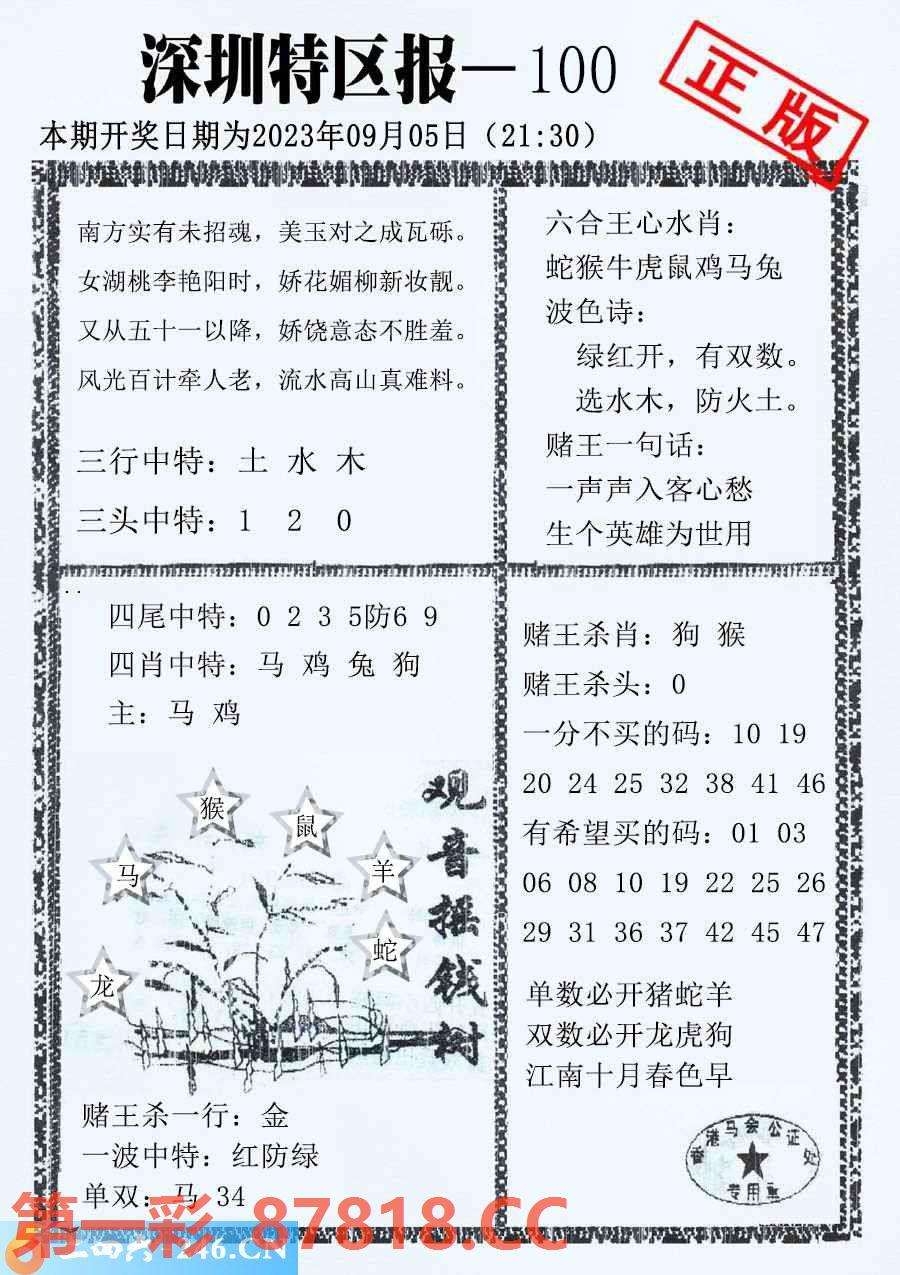 深圳特区报—100
正版
本期开奖日期为2023年09月05日（21:30）
南方实有未招魂，美玉对之成瓦砾。
女湖桃李艳阳时，娇花媚柳新妆靓。
又从五十一以降，娇饶意态不胜羞。
风光百计牵人老，流水高山真难料。
三行中特：土 水 木
三头中特：1 2 0
六合王心水肖：
蛇猴牛虎鼠鸡马兔
波色诗：
绿红开，有双数。
选水木，防火土。
赌王一句话：
一声声入客心愁
生个英雄为世用
四尾中特：0 2 3 5防6 9
四肖中特：马 鸡 兔 狗
主：马 鸡
猴
鼠
马
羊
蛇
龙
观音摇钱树
赌王杀一行：金
一波中特：红防绿
单双：马 34
赌王杀肖：狗 猴
赌王杀头：0
一分不买的码：10 19
20 24 25 32 38 41 46
有希望买的码：01 03
06 08 10 19 22 25 26
29 31 36 37 42 45 47
单数必开猪蛇羊
双数必开龙虎狗
江南十月春色早
香港马会公证处
专用章
第一彩 87818.CC
246.CN